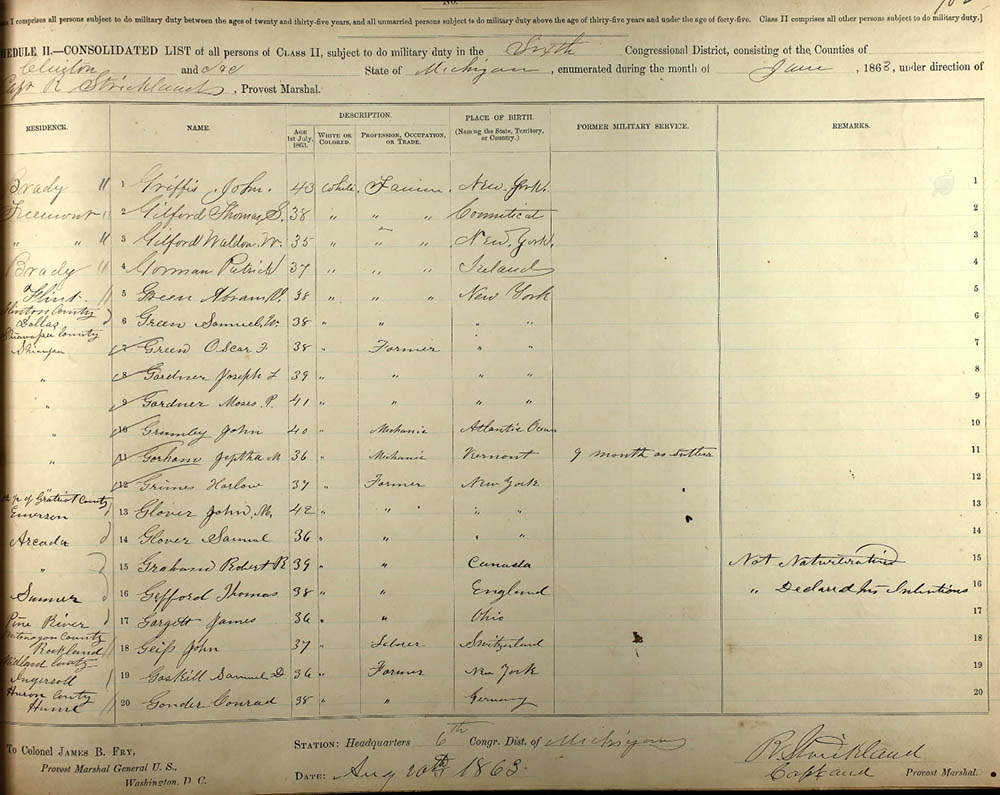 No.
ss I comprises all persons subject to do military duty between the ages of twenty and thirty-five years, and all unmarried persons subject to do military duty above the age of thirty-five years and under the age of forty-five. Class II comprises all other persons subject to do military duty.]
HEDULE II.—CONSOLIDATED LIST of all persons of CLASS II, subject to do military duty in the Sixth Congressional District, consisting of the Counties of
Clinton and State of Michigan, enumerated during the month of June, 1863, under direction of
Capt R Strickland, Provost Marshal.
RESIDENCE. NAME. DESCRIPTION. PLACE OF BIRTH. (Naming the State, Territory, or Country.) FORMER MILITARY SERVICE. REMARKS.
AGE 1st July, 1863. WHITE OR COLORED. PROFESSION, OCCUPATION, OR TRADE.
Brady " 1 Griffis John. 43 White. Farmer. New York. 1
Freemont " 2 Gilford Thomas, S. 38 " " " Conneticut 2
" " " 3 Gilford Waldon. W. 35 " " " New York. 3
Brady " 4 Gorman Patrick 37 " " " Ireland 4
Flint 5 Green Abram, 38 " " " New York 5
Clinton County
Dallas 6 Green Samuel. W. 38 " " " 6
Shiawassee County
7 Green Oscar F 38 " Farmer " " 7
" 8 Gardner Joseph L 39 " " " " 8
" 9 Gardner Moses. P. 41 " " " " 9
" 10 Grumley John 40 " Mechanic Atlantic Ocean 10
" 11 Gorham Jeptha M 36 " Mechanic Vermont 9 month as sutler 11
12 Grimes Harlow 37 " Farmer New York 12
of Gratiot County
Emerson 13 Glover John. M. 42 " " " " 13
Arcada 14 Glover Samuel 36 " " " " 14
" 15 Graham Robert R 39 " " Canada Not Naturalized 15
Sumner 16 Gefford Thomas 38 " " England " Declared his Intentions 16
Pine River 17 Gargett James 36 " " Ohio 17
Ontonagon County
Rockland 18 Geiss John 37 " Switzerland 18
Midland County
Ingersoll 19 Gaskill Samuel D 36 " Farmer New York 19
Huron County
Hume 20 Gonder Conrad 38 " " Germany 20
To Colonel JAMES B. FRY,
Provost Marshal General U. S.,
Washington, D. C.
STATION: Headquarters 6th Congr. Dist. of Michigan
DATE: Aug 20th 1863.
R Strickland
Provost Marshal.